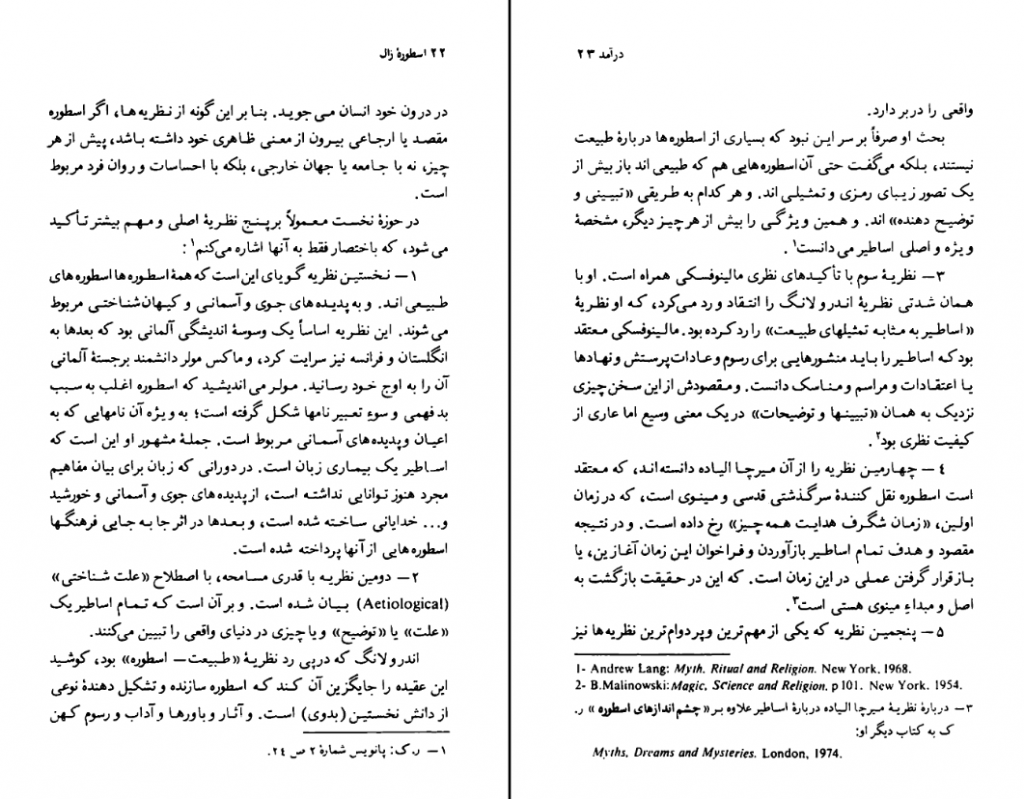 ۲۲ اسطورهٔ زال
در درون خود انسان می‌جوید. بنا بر این گونه از نظریه‌ها، اگر اسطوره
مقصد یا ارجاعی بیرون از معنی ظاهری خود داشته باشد، پیش از هر
چیز، نه با جامعه یا جهان خارجی، بلکه با احساسات و روان فرد مربوط
است.
در حوزهٔ نخست معمولاً بر پنج نظریهٔ اصلی و مهم بیشتر تأکید
می‌شود، که باختصار فقط به آنها اشاره می‌کنم۱:
۱— نخستین نظریه گویای این است که همهٔ اسطوره‌ها اسطوره‌های
طبیعی‌اند. و به پدیده‌های جوی و آسمانی و کیهان‌شناختی مربوط
می‌شوند. این نظریه اساساً یک وسوسهٔ اندیشگی آلمانی بود که بعدها به
انگلستان و فرانسه نیز سرایت کرد، و ماکس مولر دانشمند برجستهٔ آلمانی
آن را به اوج خود رسانید. مولر می‌اندیشید که اسطوره اغلب به سبب
بد فهمی و سوءِ تعبیر نامها شکل گرفته است؛ به ویژه آن نامهایی که به
اعیان و پدیده‌های آسمانی مربوط است. جملهٔ مشهور او این است که
اساطیر یک بیماری زبان است. در دورانی که زبان برای بیان مفاهیم
مجرد هنوز توانایی نداشته است، از پدیده‌های جوی و آسمانی و خورشید
و... خدایانی ساخته شده است، و بعدها در اثر جا به جایی فرهنگها
اسطوره‌هایی از آنها پرداخته شده است.
۲— دومین نظریه با قدری مسامحه، با اصطلاح «علت شناختی»
(Aetiological) بیان شده است. و بر آن است که تمام اساطیر یک
«علت» یا «توضیح» و یا چیزی در دنیای واقعی را تبیین می‌کنند.
اندرو لانگ که در پی رد نظریهٔ «طبیعت— اسطوره» بود، کوشید
این عقیده را جایگزین آن کند که اسطوره سازنده و تشکیل دهندهٔ نوعی
از دانش نخستین (بدوی) است. و آثار و باورها و آداب و رسوم کهن
۱— ر.ک: پانویس شمارهٔ ۲ ص ۲۴.
درآمد ۲۳
واقعی را در بر دارد.
بحث او صرفاً بر سر این نبود که بسیاری از اسطوره‌ها دربارهٔ طبیعت
نیستند، بلکه می‌گفت حتی آن اسطوره‌هایی هم که طبیعی‌اند باز بیش از
یک تصور زیبای رمزی و تمثیلی‌اند. و هر کدام به طریقی «تبیینی و
توضیح دهنده» اند. و همین ویژگی را بیش از هر چیز دیگر، مشخصهٔ
ویژه و اصلی اساطیر می‌دانست۱.
۳— نظریهٔ سوم با تأکیدهای نظری مالینوفسکی همراه است. او با
همان شدتی نظریهٔ اندرو لانگ را انتقاد و رد می‌کرد، که او نظریهٔ
«اساطیر به مثابه تمثیلهای طبیعت» را رد کرده بود. مالینوفسکی معتقد
بود که اساطیر را باید منشورهایی برای رسوم و عادات پرستش و نهادها
یا اعتقادات و مراسم و مناسک دانست. و مقصودش از این سخن چیزی
نزدیک به همان «تبیینها و توضیحات» در یک معنی وسیع اما عاری از
کیفیت نظری بود۲.
۴— چهارمین نظریه را از آن میرچا الیاده دانسته‌اند، که معتقد
است اسطوره نقل کنندهٔ سرگذشتی قدسی و مینوی است، که در زمان
اولین، «زمان شگرف هدایت همه چیز» رخ داده است. و در نتیجه
مقصود و هدف تمام اساطیر باز آوردن و فراخوان این زمان آغازین، یا
باز قرار گرفتن عملی در این زمان است. که این در حقیقت بازگشت به
اصل و مبداءِ مینوی هستی است۳.
۵— پنجمین نظریه که یکی از مهم‌ترین و پر دوام‌ترین نظریه‌ها نیز
1- Andrew Lang: Myth. Ritual and Religion. New York. 1968.
2- B.Malinowski: Magic, Science and Religion, p 101. New York. 1954.
۳— دربارهٔ نظریهٔ میرچا الیاده دربارهٔ اساطیر علاوه بر «چشم‌اندازهای اسطوره» ر.
ک به کتاب دیگر او:
Myths, Dreams and Mysteries. London, 1974.